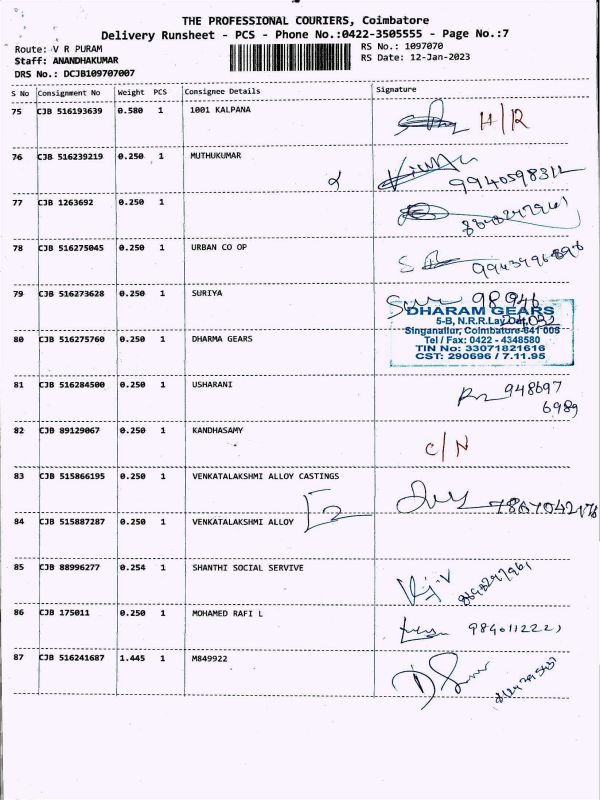 THE PROFESSIONAL COURIERS, Coimbatore
Delivery Runsheet - PCS - Phone No.:0422-3505555 - Page No.:7
Route: V R PURAM
Staff: ANANDHAKUMAR
DRS No.: DCJB109707007
RS No.: 1097070
RS Date: 12-Jan-2023
S No Consignment No Weight PCS Consignee Details Signature
75 CJB 516193639 0.580 1 1001 KALPANA H/R
76 CJB 516239219 0.250 1 MUTHUKUMAR
77 CJB 1263692 0.250 1
78 CJB 516275045 0.250 1 URBAN CO OP
79 CJB 516273628 0.250 1 SURIYA
DHARAM GEARS
5-B, N.R.R.Lay Out,
Singanallur, Coimbatore-641 005
Tel / Fax: 0422 - 4348580
TIN No: 33071821616
CST: 290696 / 7.11.95
80 CJB 516275760 0.250 1 DHARMA GEARS
81 CJB 516284500 0.250 1 USHARANI 948697
6989
82 CJB 89129067 0.250 1 KANDHASAMY C/N
83 CJB 515866195 0.250 1 VENKATALAKSHMI ALLOY CASTINGS
84 CJB 515887287 0.250 1 VENKATALAKSHMI ALLOY 2
85 CJB 88996277 0.254 1 SHANTHI SOCIAL SERVIVE
86 CJB 175011 0.250 1 MOHAMED RAFI L 9840112221
87 CJB 516241687 1.445 1 M849922